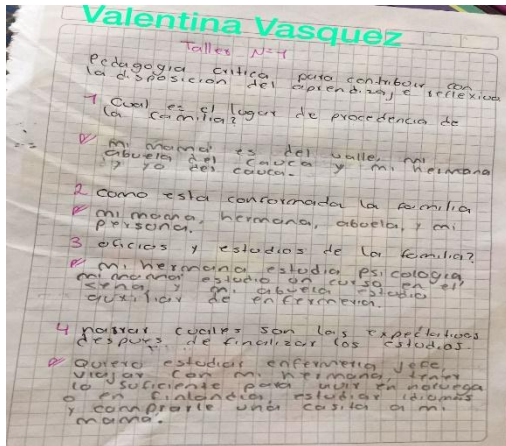 Valentina Vasquez
Taller N=1
Pedagogia critica para contribuir con
la disposicion del aprendizaje reflexiva
1 Cual es el lugar de procedencia de
la familia?
mi mamá es del valle, mi
abuela del cauca y mi hermana
y yo del cauca.
2 como esta conformada la familia
mi mama, hermana, abuela, y mi
persona.
3 oficios y estudios de la familia?
mi hermana estudia psicologia
mi mamá estudio un curso en el
sena, y mi abuela estudio
auxiliar de enfermeria.
4 narrar cuales son las expectativas
despues de finalizar los estudios.
Quiero estudiar enfermeria jefe,
viajar con mi hermana, tener
lo suficiente para vivir en noruega
o en finlandia, estudiar idiomas
y comprarle una casita a mi
mama.